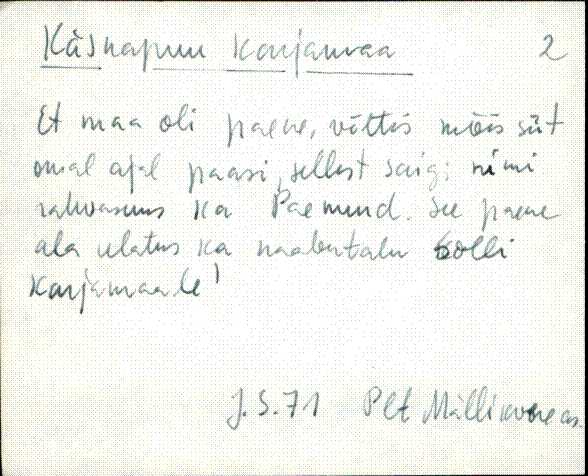 Käsnapuu Karjamaa 2
Et maa oli paene, võttis mõis siit
omal ajal paasi, sellest saigi nimi
rahvasuus ka Paemurd. See paene
ala ulatus ka naabertalu Solli
Karjamaale!
J.S.71 Plt Mällikvere as.